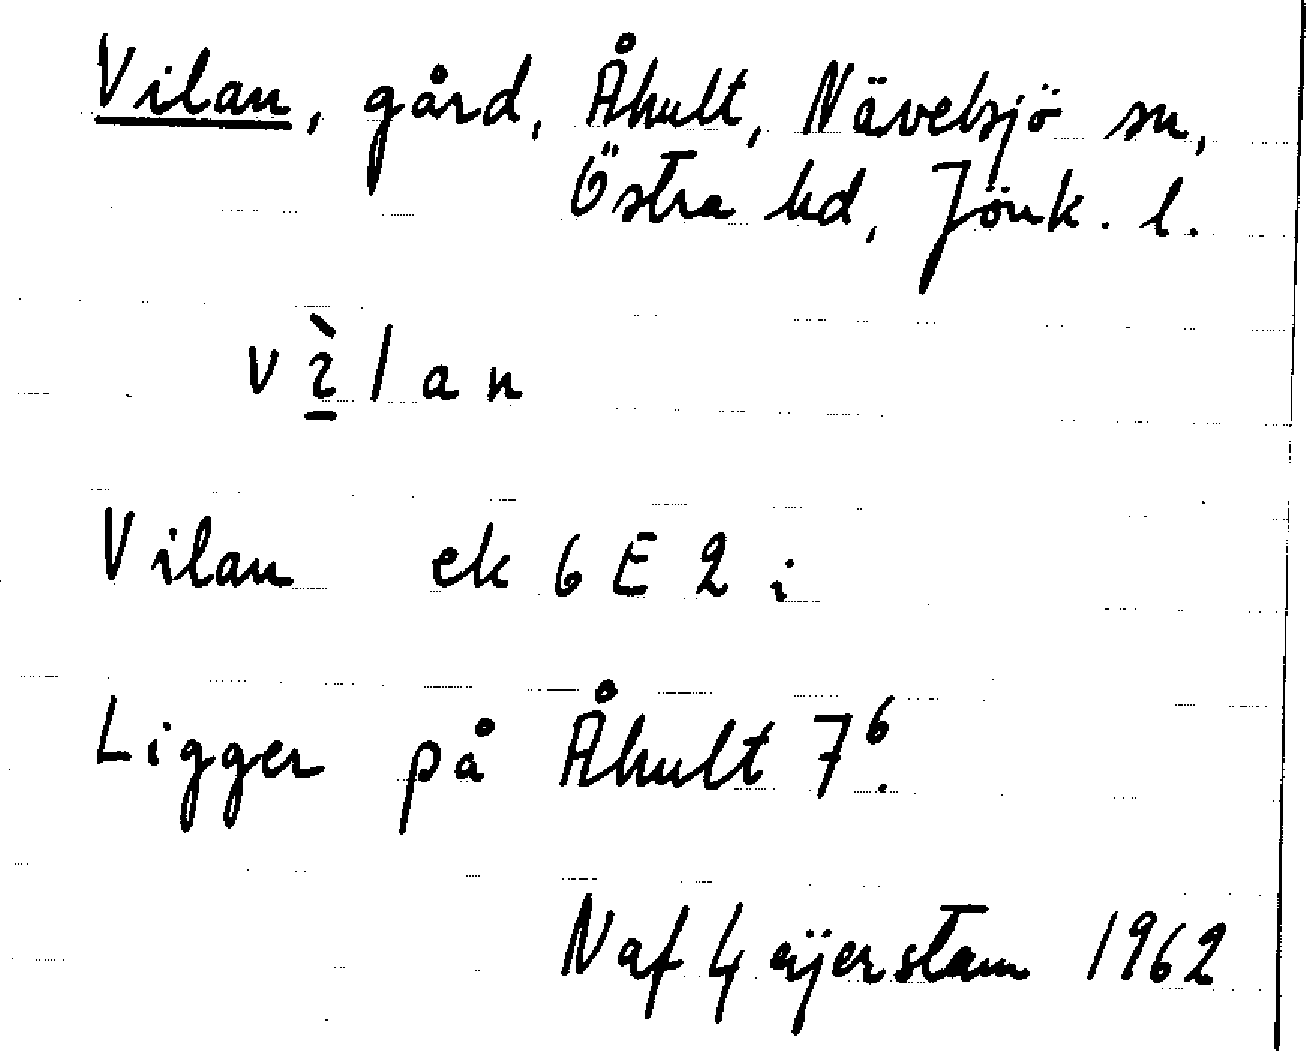 Vilan, gård, Åhult, Nävelsjö sn,
Östra hd, Jönk. l.
v ì̠ l a n
Vilan ek 6 E 2 i
Ligger på Åhult 7⁶.
Naf Geijerstam 1962